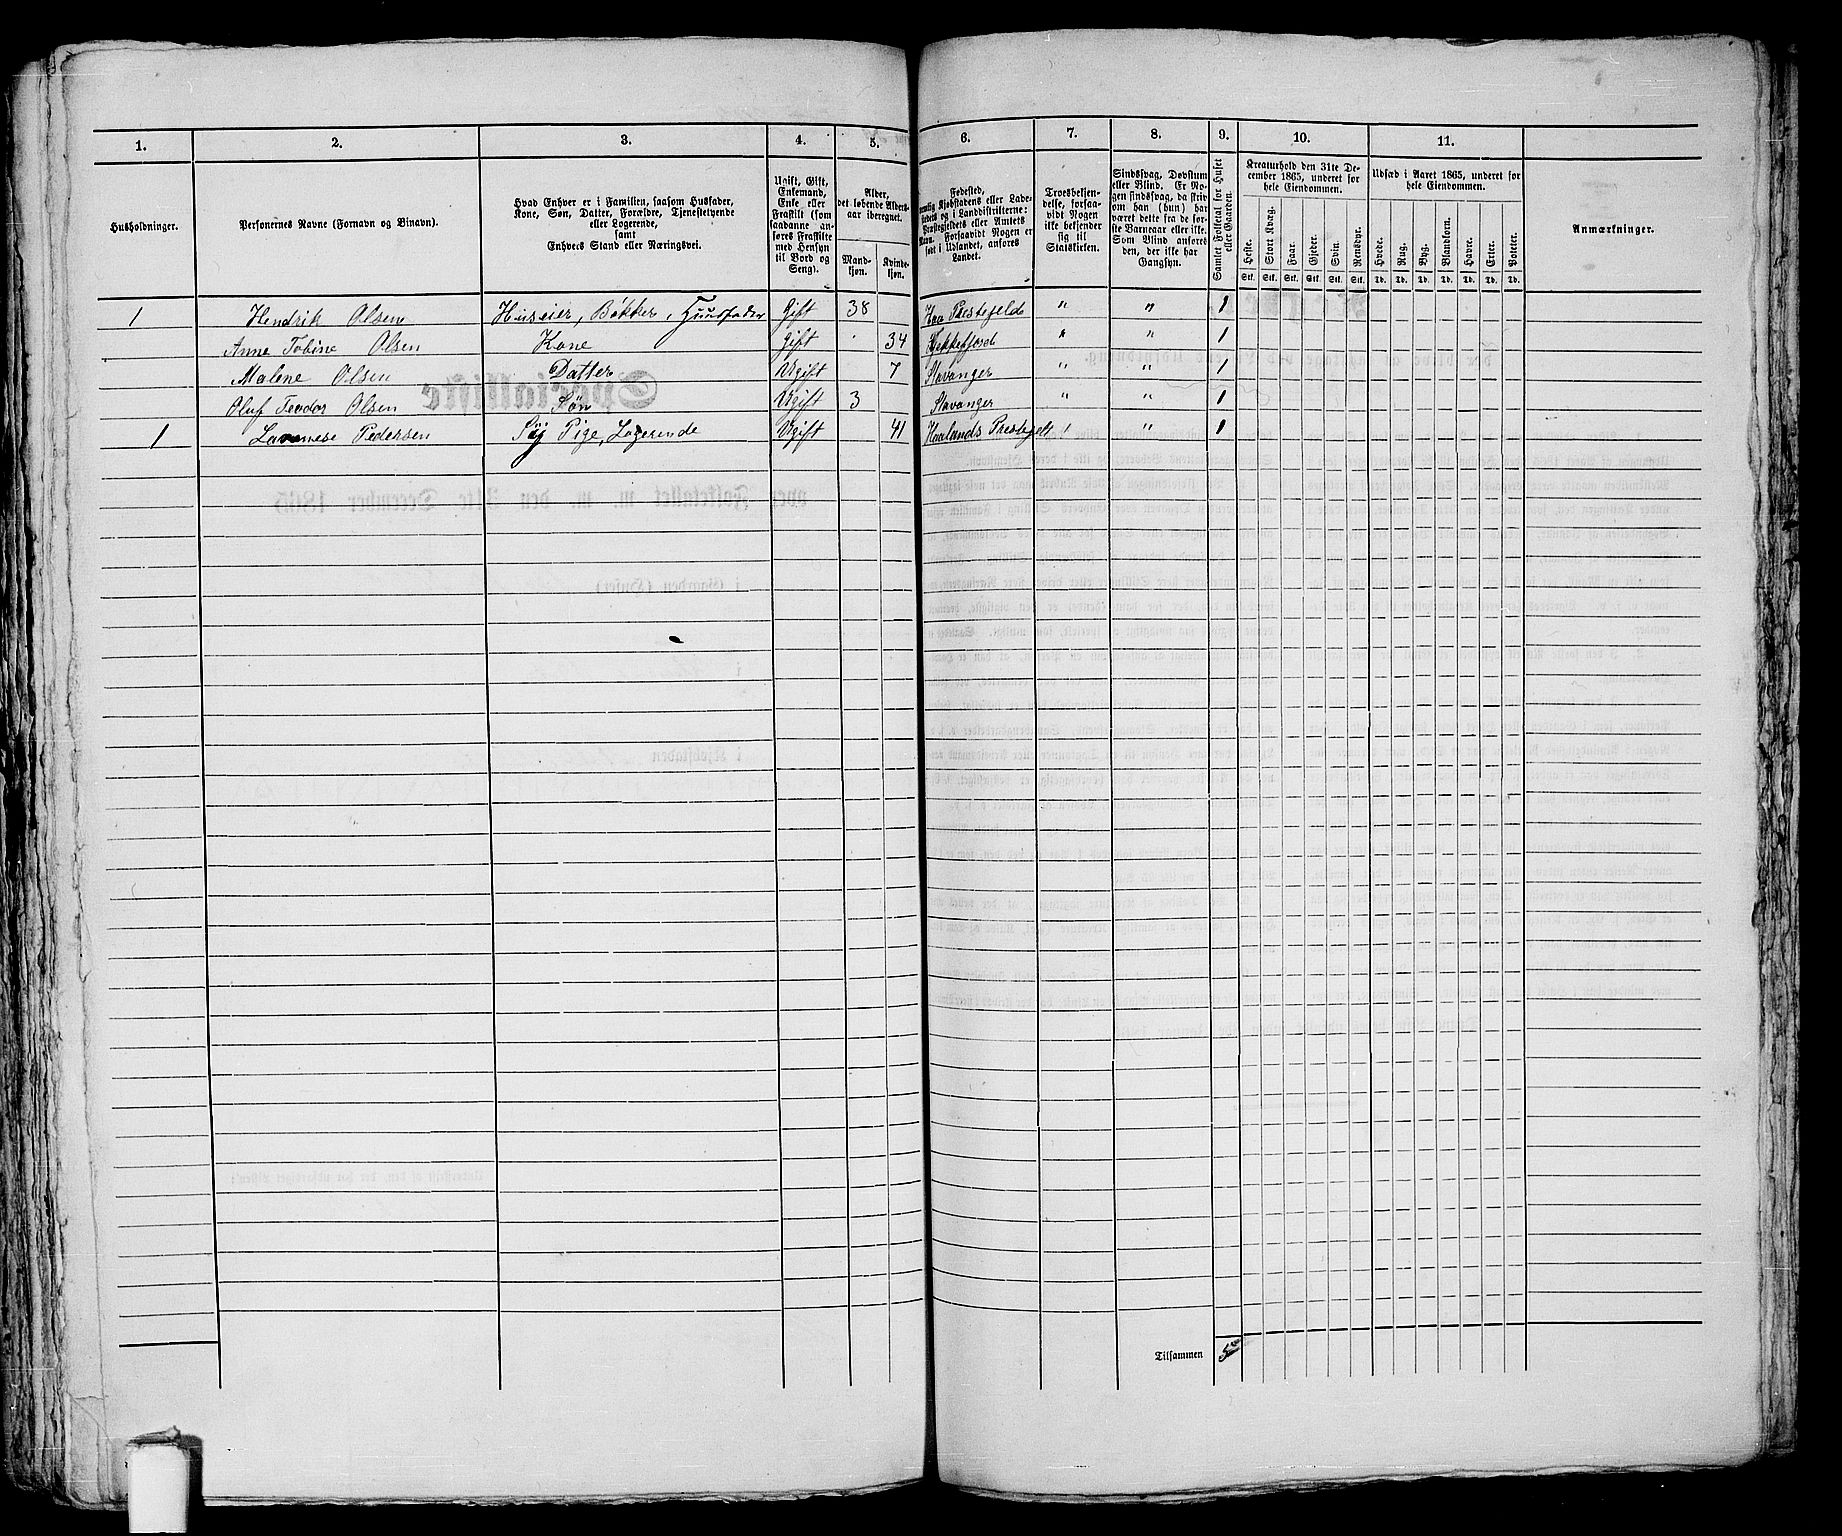 1. 2. 3. 4. 5. 6. 7. 8. 9. 10. 11.
Husholdninger.
Personernes Navne (Fornavn og Binavn).
Hvad Enhver er i Familien, saasom Husfader,
Kone, Søn, Datter, Forældre, Tjenestetyende
eller Logerende,
samt
Enhvers Stand eller Næringsvei.
Ugift, Gift,
Enkemand,
Enke eller
Fraskilt (som
saadanne an-
føres Fraskilte
med Hensyn
til Bord og
Seng).
Alder,
det løbende Alders-
aar iberegnet.
Mand-
kjøn.
Kvinde-
kjøn.
Fødested,
Kjøbstadens eller Lade-
stedets og i Landdistrikterne:
Præstegjeldets eller Amtets
Navn. Forsaavidt Nogen er
født i Udlandet, anføres
Landet.
Troesbekjen-
delse, forsaa-
vidt Nogen
ikke bekjender
sig til
Statskirken.
Sindssvag, Døvstum
eller Blind. Er No-
gen sindssvag, da skriv
om han (hun) har
været dette fra de før-
ste Barneaar eller ikke.
Som Blind anføres
den, der ikke har
Gangsyn.
Samlet Folketal for Huset
eller Gaarden.
Kreaturhold den 31te De-
cember 1865, underet for
hele Eiendommen.
Heste. Stort Kvæg. Faar. Gjeder. Svin. Rensdyr.
Stk. Stk. Stk. Stk. Stk. Stk.
Udsæd i Aaret 1865, underet for
hele Eiendommen.
Hvede. Rug. Byg. Blandkorn. Havre. Erter. Poteter.
Td. Td. Td. Td. Td. Td. Td.
Anmærkninger.
1 Hendrik Olsen Huseier, Bøkker, Huusfader Gift 38 Haa Prestejeld " " 1
Anne Tobine Olsen Kone Gift 34 Flekkefjord " " 1
Malene Olsen Datter Ugift 7 Stavanger " " 1
Oluf Teodor Olsen Søn Ugift 3 Stavanger " " 1
1 Pedersen Syg Pige, Logerende Ugift 41 Haalands Prestejelt " " 1
Tilsammen 5